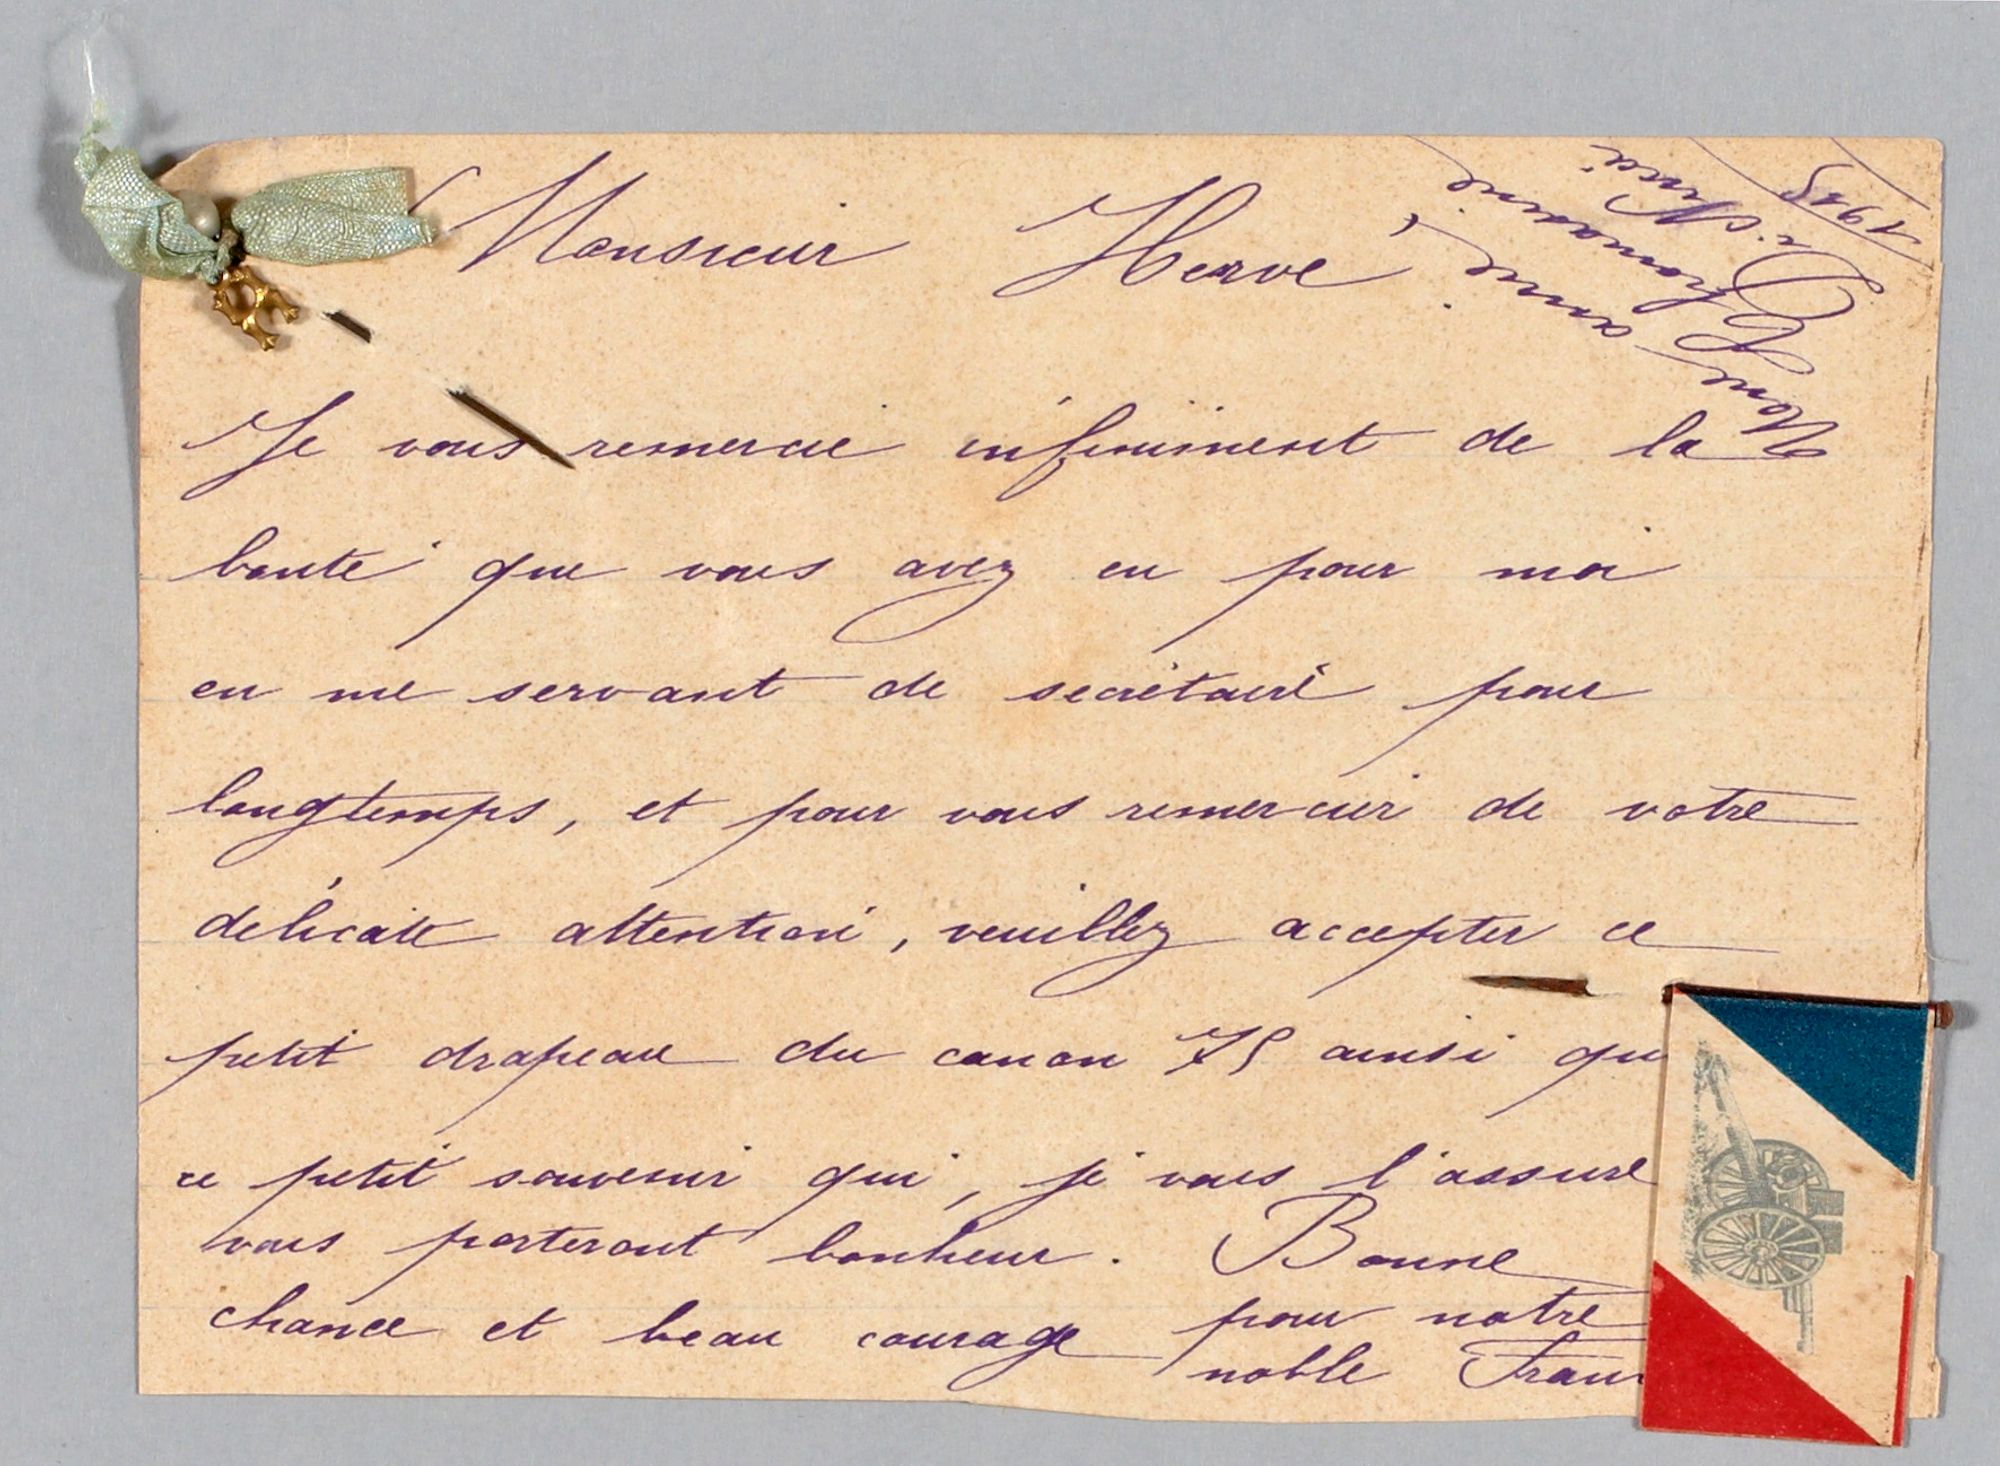 Monsieur Herve
Je vous remercie infiniment de la
bonté que vous avez eu pour moi
en me servant de secrétaire pour
longtemps, et pour vous remercier de votre
délicate attention, veuillez accepter ce
petit drapeau du canon 75 ainsi qu
ce petit souvenir qui, je vous l'assure
vous porteront bonheur. Bonne
chance et beau courage pour notre
noble Fran
amie
1915